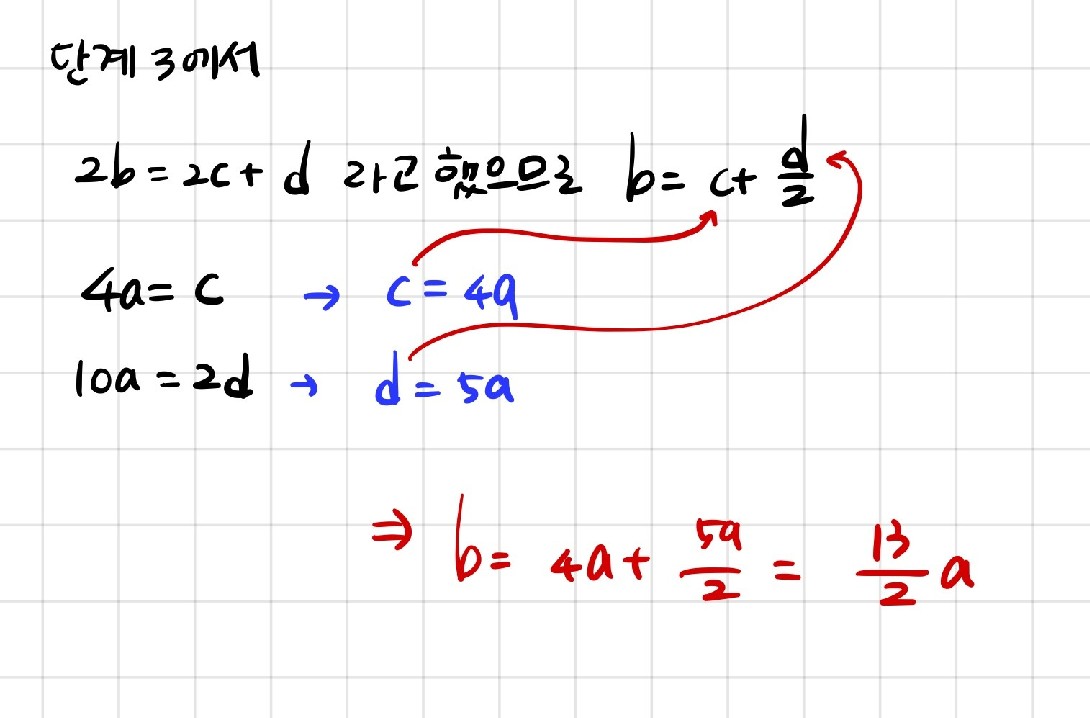 단계 3에서
2b = 2c + d 라고 했으므로 b = c + d/2
4a = c → c = 4a
10a = 2d → d = 5a
⇒ b = 4a + 5a/2 = 13/2 a